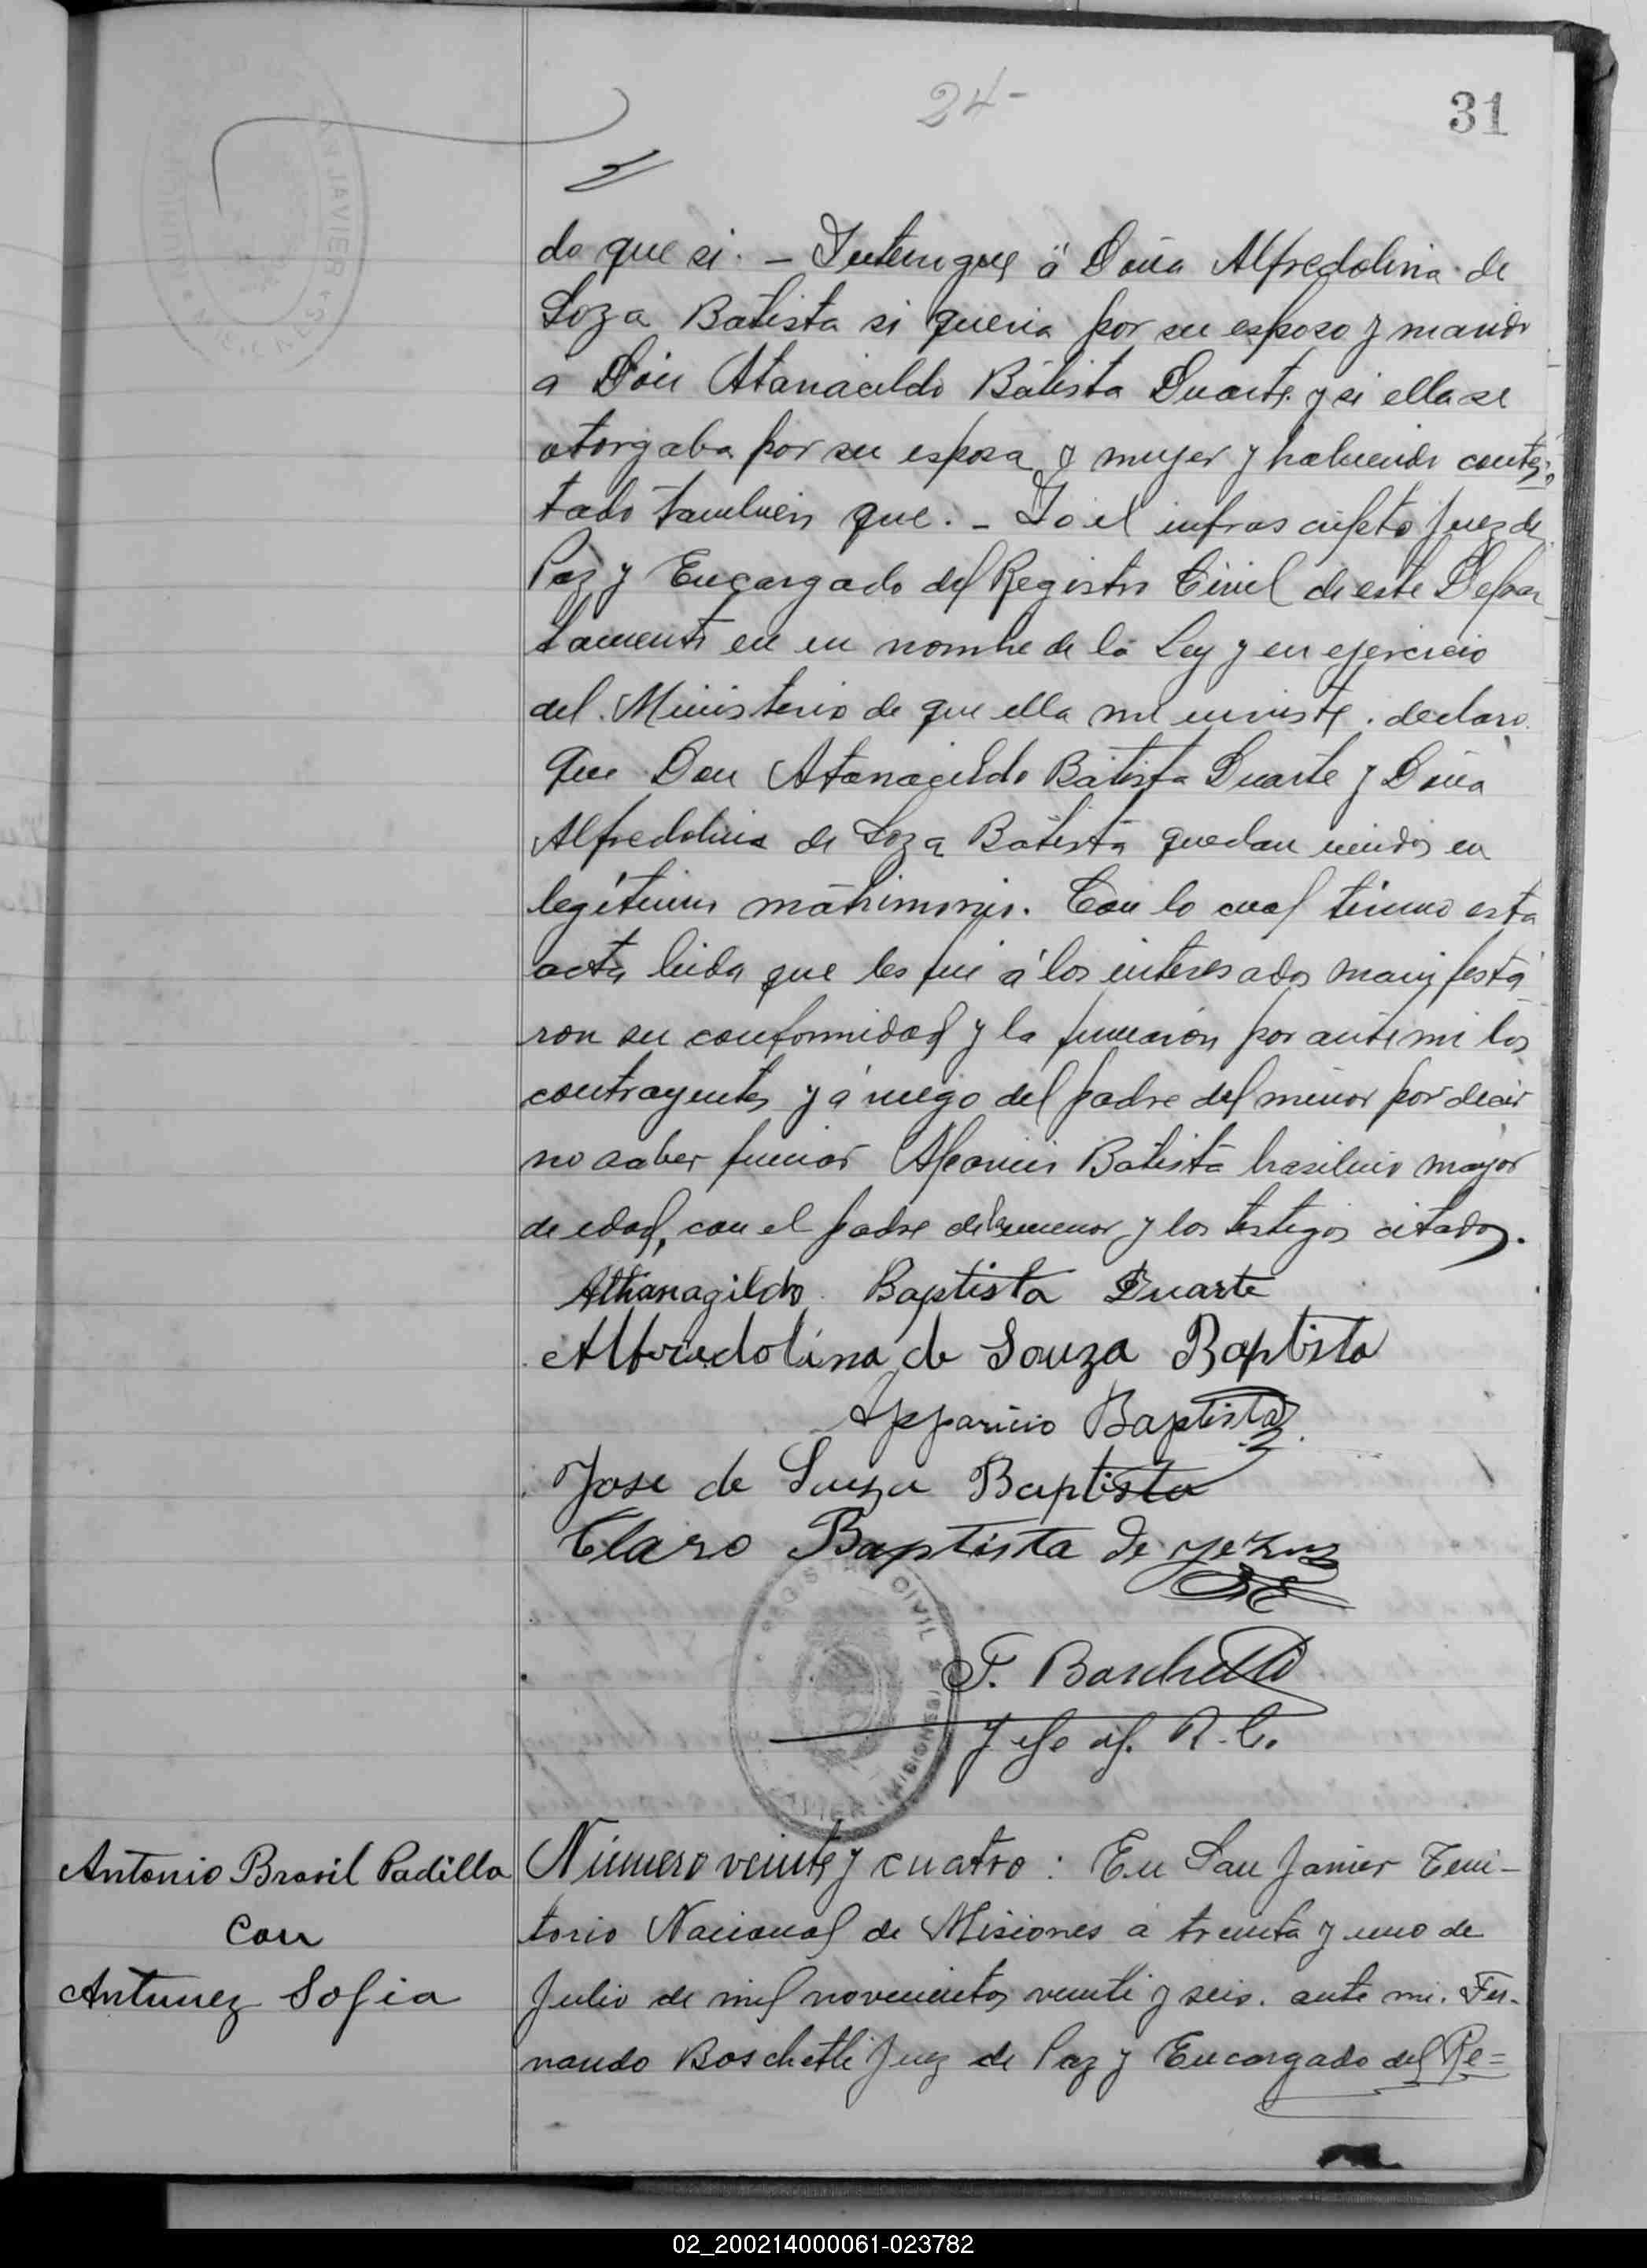 24-
31
do que si. - Interrogué á Doña Alfredolina de
Soza Batista si queria por su esposo y marido
a Don Atanacildo Batista Duarte y si ella se
otorgaba por su esposa y mujer y habiendo contes-
tado tambien que. - Yo el infrascripto Juez de
Paz y Encargado del Registro Civil de este Depar
tamento en en nombre de la Ley y en ejercicio
del Ministerio de que ella me enviste. declaro
que Don Atanagildo Batista Duarte y Doña
Alfredolina de Soza Batista quedan unidos en
legítimo matrimonio. Con lo cual términο esta
acta leida que les fué á los interesados manifesta
ron su conformidad y la firmaron por ante mi los
contrayentes y á ruego del padre del menor por decir
no saber firmar Aparicio Batista brasilero mayor
de edad, con el padre de la menor y los testigos citados.
Athanagildo Baptista Duarte
Alfredolina de Souza Baptista
Apparicio Baptista
Jose de Souza Baptista
Claro Baptista de Jezus
F. Boschetti
Jefe del R. C.
REGISTRO CIVIL
JAVIER (MISIONES)
Antonio Brasil Padilla
con
Antunez Sofia
Número veinte y cuatro: En San Javier Terri-
torio Nacional de Misiones a treinta y uno de
Julio de mil novecientos veinte y seis. ante mi. Fer-
nando Boschetti Juez de Paz y Encargado del Re=
02_200214000061-023782